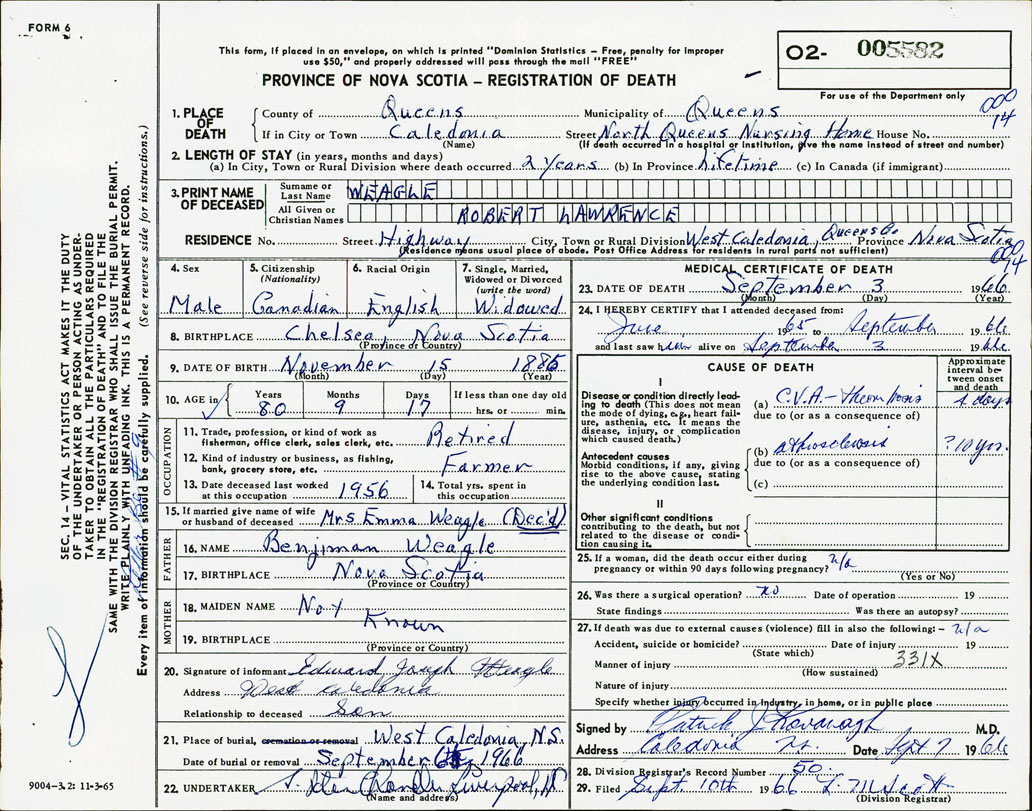 FORM 6
This form, if placed in an envelope, on which is printed "Dominion Statistics – Free, penalty for improper
use $50," and properly addressed will pass through the mail "FREE"
PROVINCE OF NOVA SCOTIA – REGISTRATION OF DEATH
02- 005582
For use of the Department only
000
14
1. PLACE OF DEATH { County of Queens Municipality of Queens
If in City or Town Caledonia Street North Queens Nursing Home House No.
(Name) (If death occurred in a hospital or institution, give the name instead of street and number)
2. LENGTH OF STAY (in years, months and days)
(a) In City, Town or Rural Division where death occurred 2 years (b) In Province Lifetime (c) In Canada (if immigrant)
3. PRINT NAME OF DECEASED { Surname or Last Name WEAGLE
All Given or Christian Names ROBERT LAWRENCE
RESIDENCE No. Street Highway City, Town or Rural Division West Caledonia, Queens Co. Province Nova Scotia
(Residence means usual place of abode. Post Office Address for residents in rural parts not sufficient)
000
14
4. Sex
Male
5. Citizenship
(Nationality)
Canadian
6. Racial Origin
English
7. Single, Married,
Widowed or Divorced
(write the word)
Widowed
8. BIRTHPLACE Chelsea, Nova Scotia
(Province or Country)
9. DATE OF BIRTH November 15 1885
(Month) (Day) (Year)
10. AGE in { Years Months Days If less than one day old
80 9 17 hrs. or min.
OCCUPATION
11. Trade, profession, or kind of work as
fisherman, office clerk, sales clerk, etc. Retired
12. Kind of industry or business, as fishing,
bank, grocery store, etc. Farmer
13. Date deceased last worked
at this occupation 1956
14. Total yrs. spent in
this occupation
15. If married give name of wife
or husband of deceased Mrs Emma Weagle (Dec'd)
FATHER
16. NAME Benjiman Weagle
17. BIRTHPLACE Nova Scotia
(Province or Country)
MOTHER
18. MAIDEN NAME Not Known
19. BIRTHPLACE
(Province or Country)
20. Signature of informant Edward Joseph Weagle
Address West Caledonia
Relationship to deceased Son
21. Place of burial, cremation or removal West Caledonia, N.S.
Date of burial or removal September 1966
22. UNDERTAKER Liverpool, NS
(Name and address)
MEDICAL CERTIFICATE OF DEATH
23. DATE OF DEATH September 3 1966
(Month) (Day) (Year)
24. I HEREBY CERTIFY that I attended deceased from:
June 1965 to September 1966
and last saw him alive on September 3 1966
CAUSE OF DEATH
Approximate interval between onset and death
I
Disease or condition directly leading to death (This does not mean
the mode of dying, e.g., heart failure, asthenia, etc. It means the
disease, injury, or complication
which caused death.)
(a) C.V.A. – thrombosis 4 days
due to (or as a consequence of)
Antecedent causes
Morbid conditions, if any, giving
rise to the above cause, stating
the underlying condition last.
(b) ? 10 yrs.
due to (or as a consequence of)
(c)
II
Other significant conditions
contributing to the death, but not
related to the disease or condition causing it.
25. If a woman, did the death occur either during
pregnancy or within 90 days following pregnancy? n/a
(Yes or No)
26. Was there a surgical operation? no Date of operation 19
State findings Was there an autopsy?
27. If death was due to external causes (violence) fill in also the following: – n/a
Accident, suicide or homicide? Date of injury 19
(State which)
Manner of injury 331X
(How sustained)
Nature of injury
Specify whether injury occurred in industry, in home, or in public place
Signed by Patrick J Kavanagh M.D.
Address Caledonia NS. Date Sept 7 1966
28. Division Registrar's Record Number 50
29. Filed Sept. 10th 1966
(Division Registrar)
SEC. 14 – VITAL STATISTICS ACT MAKES IT THE DUTY
OF THE UNDERTAKER OR PERSON ACTING AS UNDER-
TAKER TO OBTAIN ALL THE PARTICULARS REQUIRED
IN THE "REGISTRATION OF DEATH" AND TO FILE THE
SAME WITH THE DIVISION REGISTRAR WHO SHALL ISSUE THE BURIAL PERMIT.
WRITE PLAINLY WITH UNFADING INK. THIS IS A PERMANENT RECORD.
Every item of information should be carefully supplied. (See reverse side for instructions.)
9004-3.2: 11-3-65